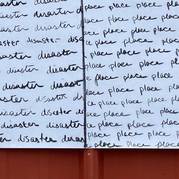 disaster disaster
disaster disaster
disaster disaster disaster
disaster disaster
disaster disaster
disaster disaster
disaster disaster
disaster disaster
place place place
place place place
place place place
place place place
place place place
place place place
place place place
place place place